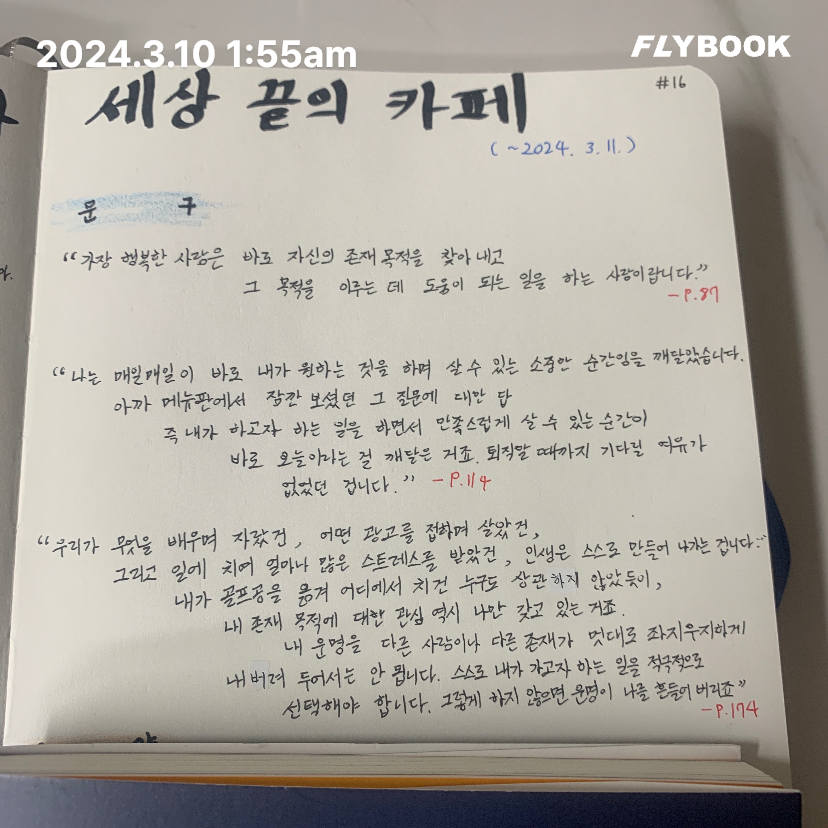 2024.3.10 1:55am
FLYBOOK
#16
세상 끝의 카페
(~2024. 3. 11.)
문 구
“가장 행복한 사람은 바로 자신의 존재 목적을 찾아내고
그 목적을 이루는 데 도움이 되는 일을 하는 사람이랍니다.”
- P.87
“나는 매일매일이 바로 내가 원하는 것을 하며 살 수 있는 소중한 순간임을 깨달았습니다.
아까 메뉴판에서 잠깐 보셨던 그 질문에 대한 답
즉 내가 하고자 하는 일을 하면서 만족스럽게 살 수 있는 순간이
바로 오늘이라는 걸 깨달은 거죠. 퇴직할 때까지 기다릴 여유가
없었던 겁니다.” - P.114
“우리가 무엇을 배우며 자랐건, 어떤 광고를 접하며 살았건,
그리고 일에 치여 얼마나 많은 스트레스를 받았건, 인생은 스스로 만들어 나가는 겁니다.”
내가 골프공을 옮겨 어디에서 치건 누구도 상관하지 않았듯이,
내 존재 목적에 대한 관심 역시 나만 갖고 있는 거죠.
내 운명을 다른 사람이나 다른 존재가 멋대로 좌지우지하게
내버려 두어서는 안 됩니다. 스스로 내가 가고자 하는 일을 적극적으로
선택해야 합니다. 그렇게 하지 않으면 운명이 나를 흔들어 버리죠”
- P.174